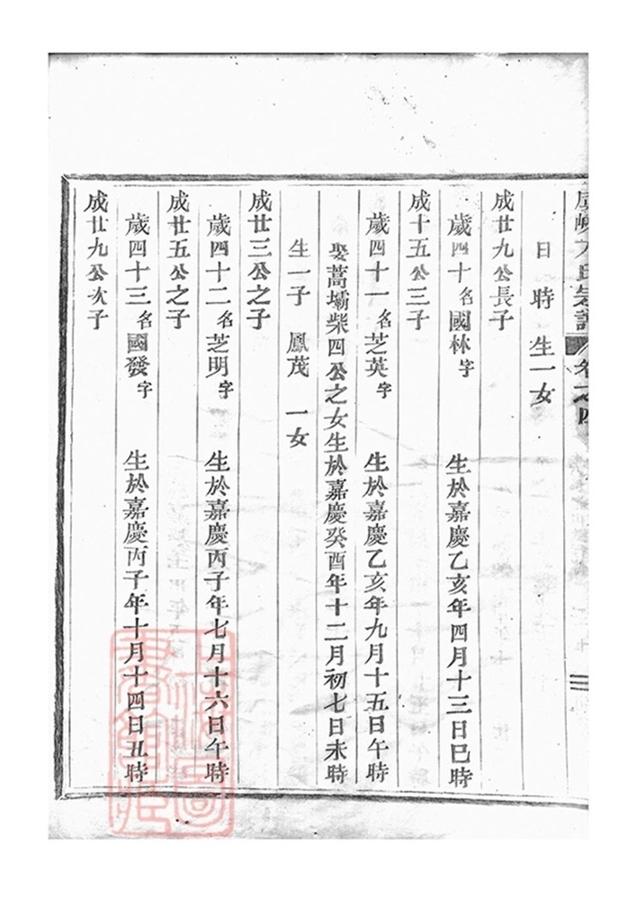 氏宗譜 卷之四
日 時 生一女
成廿九公長子
歲四十名國林字 生於嘉慶乙亥年四月十三日巳時
成十五公三子
歲四十一名芝英字 生於嘉慶乙亥年九月十五日午時
娶蒿壩柴四公之女生於嘉慶癸酉年十二月初七日未時
生一子 鳳茂 一女
成廿三公之子
歲四十二名芝明字 生於嘉慶丙子年七月十六日午時
成廿五公之子
歲四十三名國發字 生於嘉慶丙子年十月十四日丑時
成廿九公次子